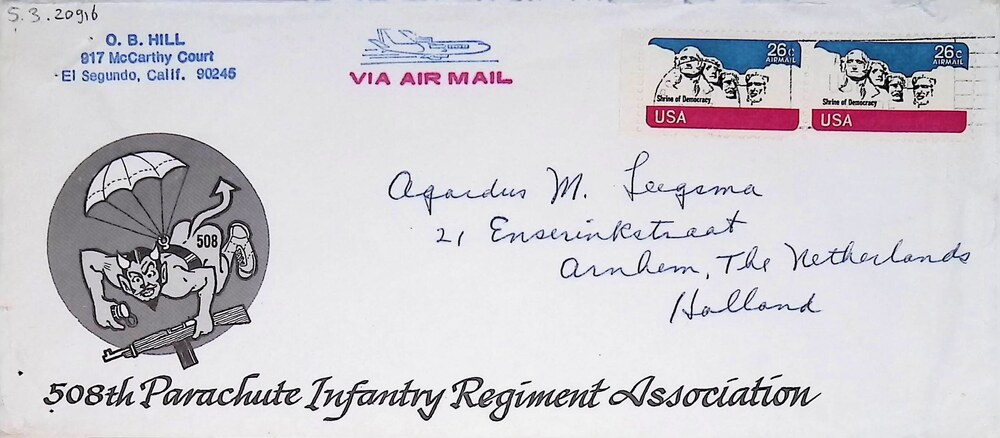 5.3.20916
O. B. HILL
917 McCarthy Court
El Segundo, Calif. 90245
VIA AIR MAIL
26c
AIRMAIL
Shrine of Democracy
USA
26c
AIRMAIL
Shrine of Democracy
USA
Agardus M. Leegsma
21 Enserinkstraat
Arnhem, The Netherlands
Holland
508
508th Parachute Infantry Regiment Association